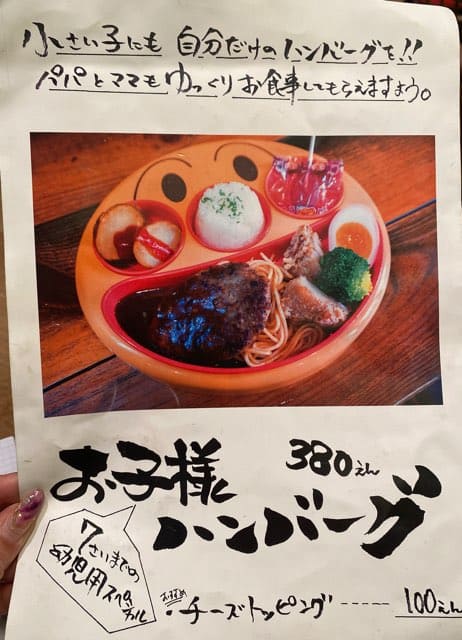 小さい子にも 自分だけのハンバーグを!!
パパとママもゆっくりお食事してもらえますよう。
お子様 380えん
ハンバーグ
7さいまでの
幼児用スペシャル
おすすめ
・チーズトッピング ----- 100えん